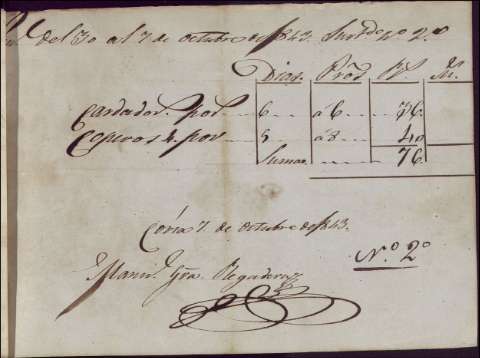 del 30 al 7 de octubre de 1843. Nº 2º
Dias. Prod Rs. M.
Cardador. por 6 a 6 36.
Coperos 4. por 5 a 8 40
Suman 76.
Coria 7. de octubre de 1843.
Nº 2º
Manul. Regadera